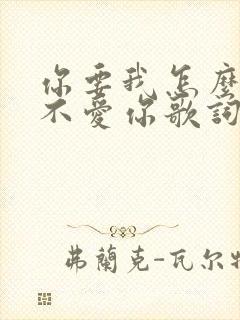 你要我怎麼
不愛你歌詞
弗蘭克-瓦尔特